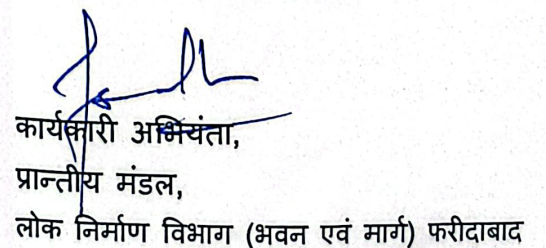 कार्यकारी अभियंता,
प्रान्तीय मंडल,
लोक निर्माण विभाग (भवन एवं मार्ग) फरीदाबाद